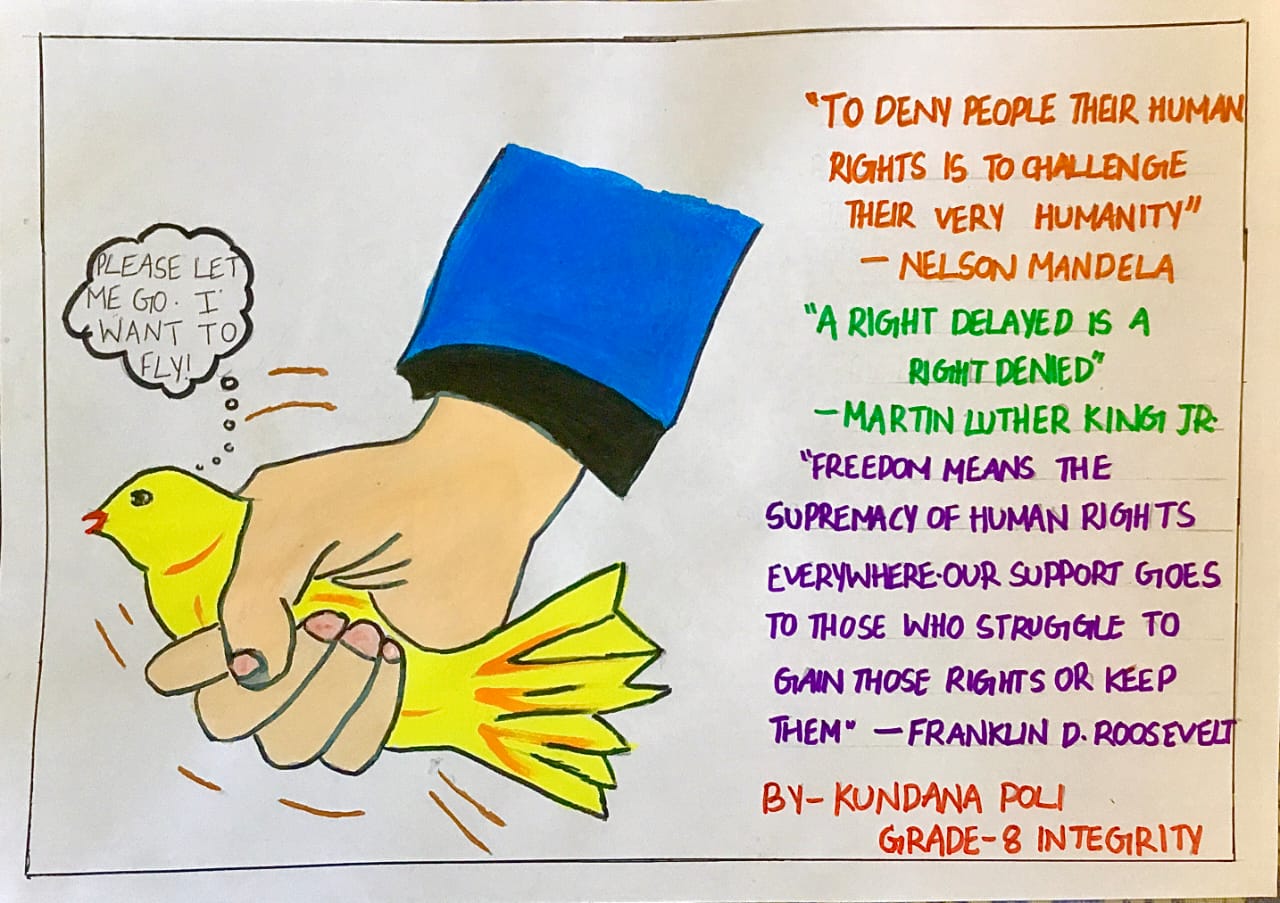 PLEASE LET
ME GO. I
WANT TO
FLY!
"TO DENY PEOPLE THEIR HUMAN
RIGHTS IS TO CHALLENGE
THEIR VERY HUMANITY"
- NELSON MANDELA
"A RIGHT DELAYED IS A
RIGHT DENIED"
-MARTIN LUTHER KING JR.
"FREEDOM MEANS THE
SUPREMACY OF HUMAN RIGHTS
EVERYWHERE.OUR SUPPORT GOES
TO THOSE WHO STRUGGLE TO
GAIN THOSE RIGHTS OR KEEP
THEM" -FRANKLIN D. ROOSEVELT
BY- KUNDANA POLI
GRADE-8 INTEGRITY